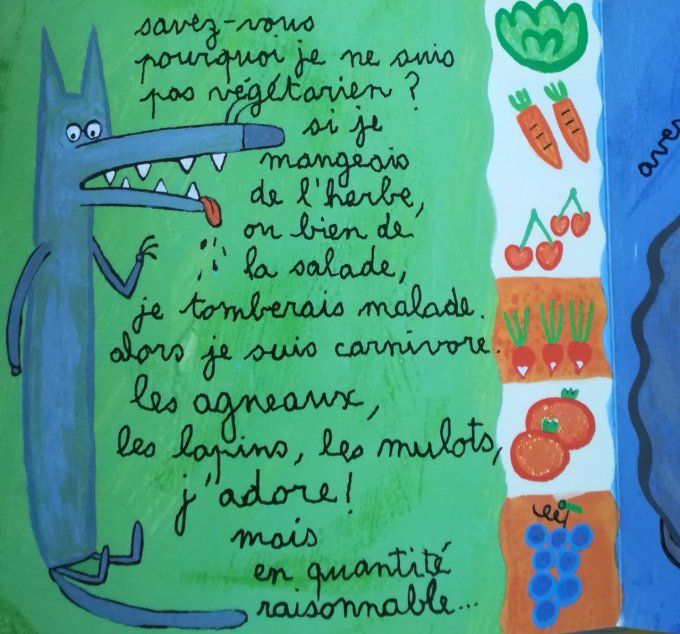 savez-vous
pourquoi je ne suis
pas végétarien ?
si je
mangeais
de l'herbe,
ou bien de
la salade,
je tomberais malade.
alors je suis carnivore.
les agneaux,
les lapins, les mulots,
j'adore!
mais
en quantité
raisonnable...
avec